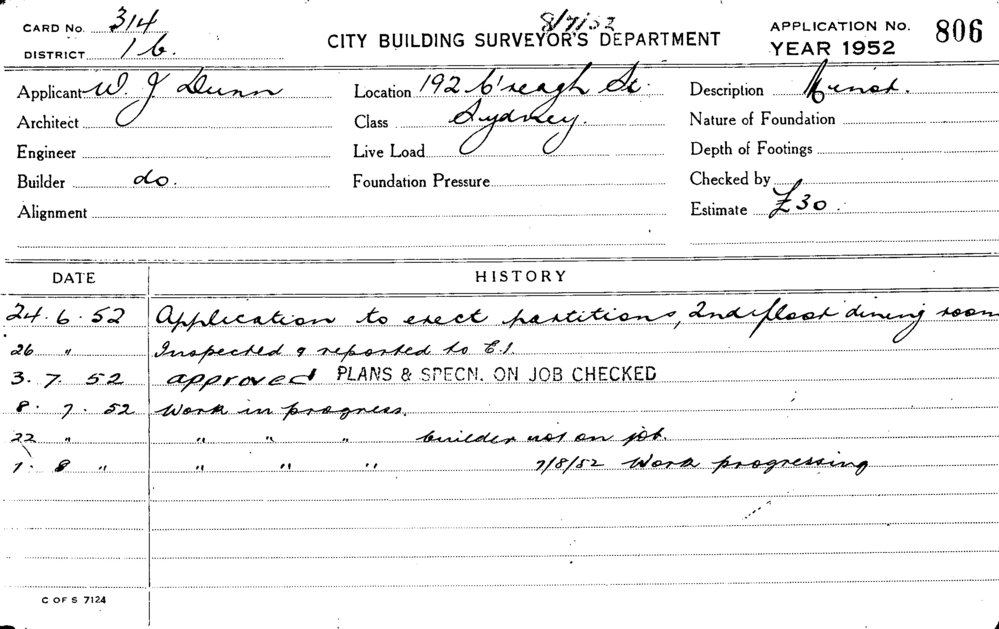 CARD No. 314 8/7/52 APPLICATION No. 806
DISTRICT 1 b. CITY BUILDING SURVEYOR'S DEPARTMENT YEAR 1952
Applicant W J Dunn Location 192 C'reagh St. Description
Architect Class Sydney. Nature of Foundation
Engineer Live Load Depth of Footings
Builder do. Foundation Pressure Checked by
Alignment Estimate £30.
DATE HISTORY
24.6.52 Application to erect partitions, 2nd floor dining room
26 " Inspected & reported to C.I.
3.7.52 approved PLANS & SPECN. ON JOB CHECKED
8.7.52 Work in progress.
22 " " " " builder not on job.
7.8 " " " " 7/8/52 Work progressing
C OF S 7124